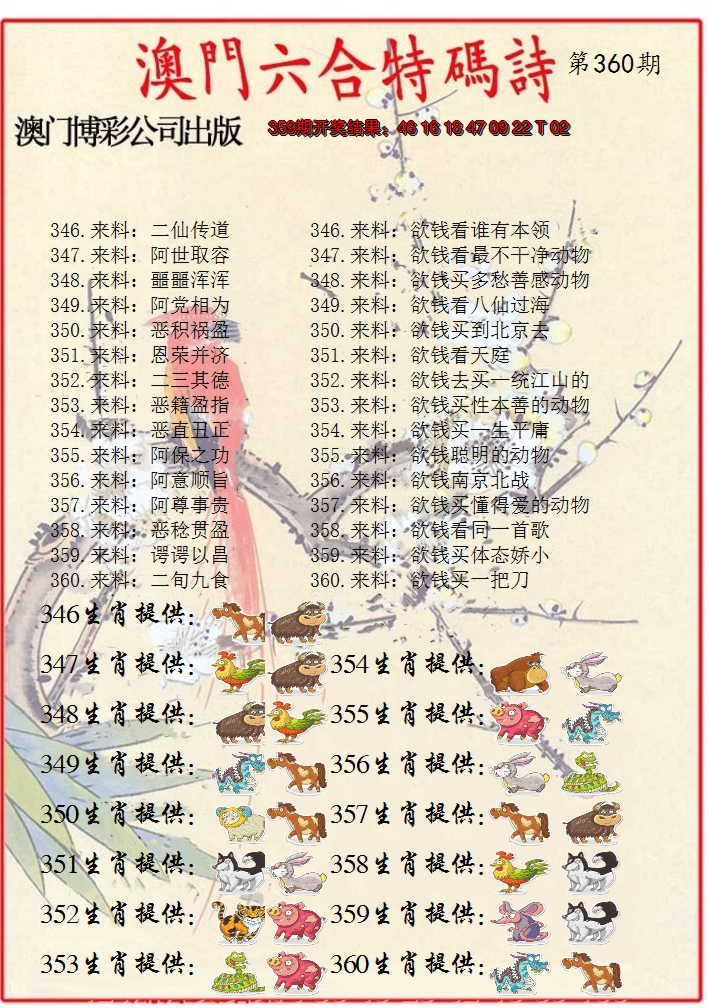 澳門六合特碼詩 第360期
澳门博彩公司出版 359期开奖结果：46 16 18 47 09 22 T 02
346.来料：二仙传道 346.来料：欲钱看谁有本领
347.来料：阿世取容 347.来料：欲钱看最不干净动物
348.来料：噩噩浑浑 348.来料：欲钱买多愁善感动物
349.来料：阿党相为 349.来料：欲钱看八仙过海
350.来料：恶积祸盈 350.来料：欲钱买到北京去
351.来料：恩荣并济 351.来料：欲钱看天庭
352.来料：二三其德 352.来料：欲钱去买一统江山的
353.来料：恶籍盈指 353.来料：欲钱买性本善的动物
354.来料：恶直丑正 354.来料：欲钱买一生平庸
355.来料：阿保之功 355.来料：欲钱聪明的动物
356.来料：阿意顺旨 356.来料：欲钱南京北战
357.来料：阿尊事贵 357.来料：欲钱买懂得爱的动物
358.来料：恶稔贯盈 358.来料：欲钱看同一首歌
359.来料：谔谔以昌 359.来料：欲钱买体态娇小
360.来料：二旬九食 360.来料：欲钱买一把刀
346生肖提供：
347生肖提供： 354生肖提供：
348生肖提供： 355生肖提供：
349生肖提供： 356生肖提供：
350生肖提供： 357生肖提供：
351生肖提供： 358生肖提供：
352生肖提供： 359生肖提供：
353生肖提供： 360生肖提供：